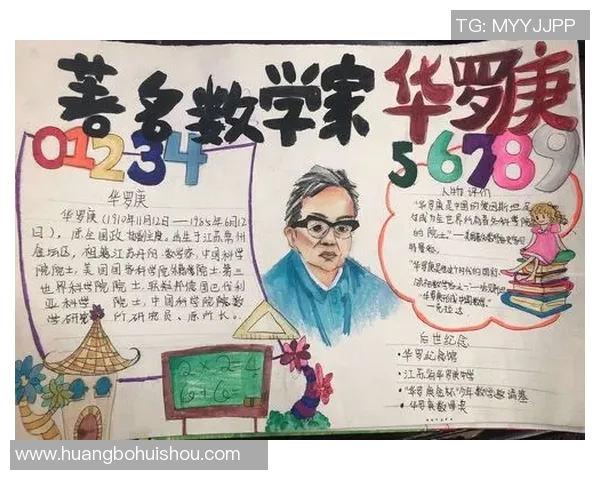 TG: MYYJJPP
著名数学家 华罗庚
01234
56789
华罗庚
华罗庚(1910年11月12日——1985年6月12
日),原全国政协副主席。出生于江苏常州
金坛区,祖籍江苏丹阳,数学家,中国科学
院院士,美国国家科学院外籍院士,第三
世界科学院院士,联邦德国巴伐利
亚科学院院士,中国科学院数
学研究所研究员、原所长。
2×2=4
6+6=
人物评价
"华罗庚是中国的爱因斯坦,足
够成为全世界所有著名科学院
的院士。"
后世纪念
·华罗庚纪念馆
·江苏省华罗庚中学
·"华罗庚金杯"少年数学邀请赛
·华罗庚数学奖
www.huangbohuishou.com